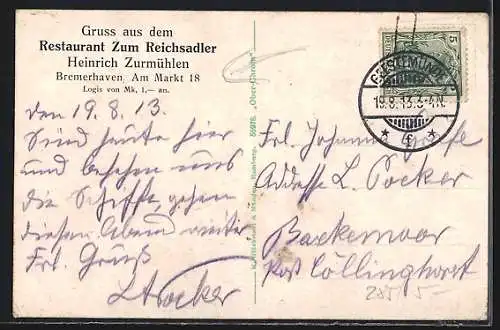 Gruss aus dem
Restaurant Zum Reichsadler
Heinrich Zurmühlen
Bremerhaven Am Markt 18
Logis von Mk. 1,— an.
den 19.8.13.
Sind heute hier
und besehen uns
die Schiffe, gehen
diesen Abend weiter
Frl. Gruß
L.
GEESTEMÜNDE
19.8.13.3-4N.
* f *
5
Frl. Johanne
Adresse L.
Backemoor
Post Cöllinghorst